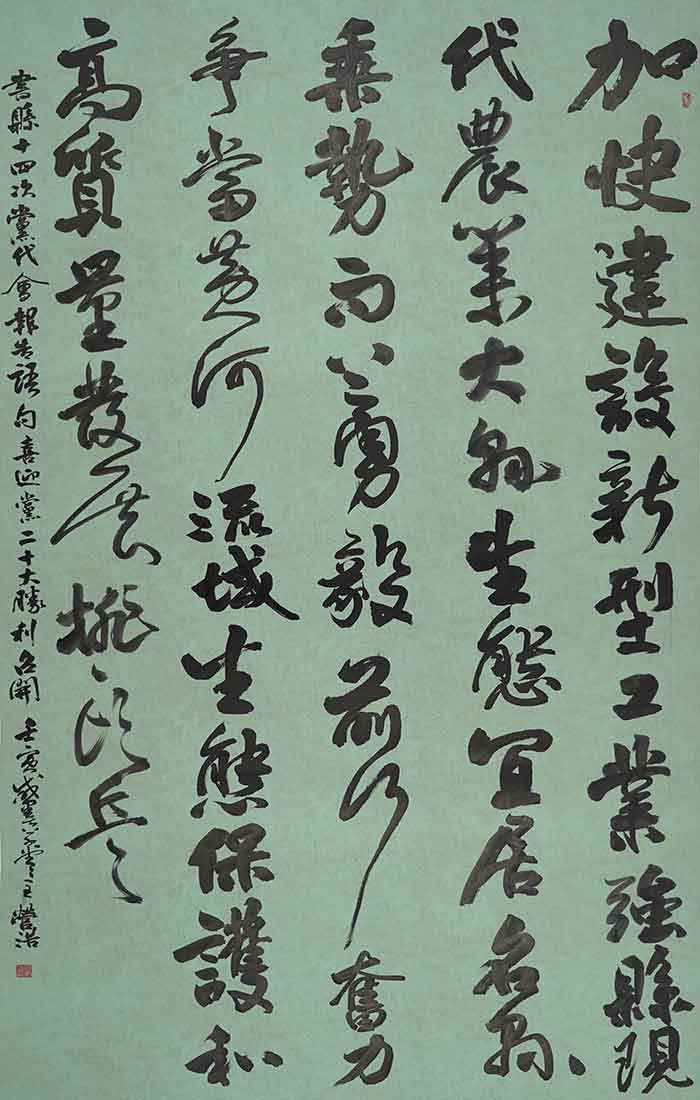 加快建設新型工業強縣現
代農業大縣生態宜居名縣
乘勢而上勇毅前行奮力
爭當黃河流域生態保護和
高質量發展排頭兵
書縣十四次黨代會報告語句喜迎黨二十大勝利召開 壬寅盛夏